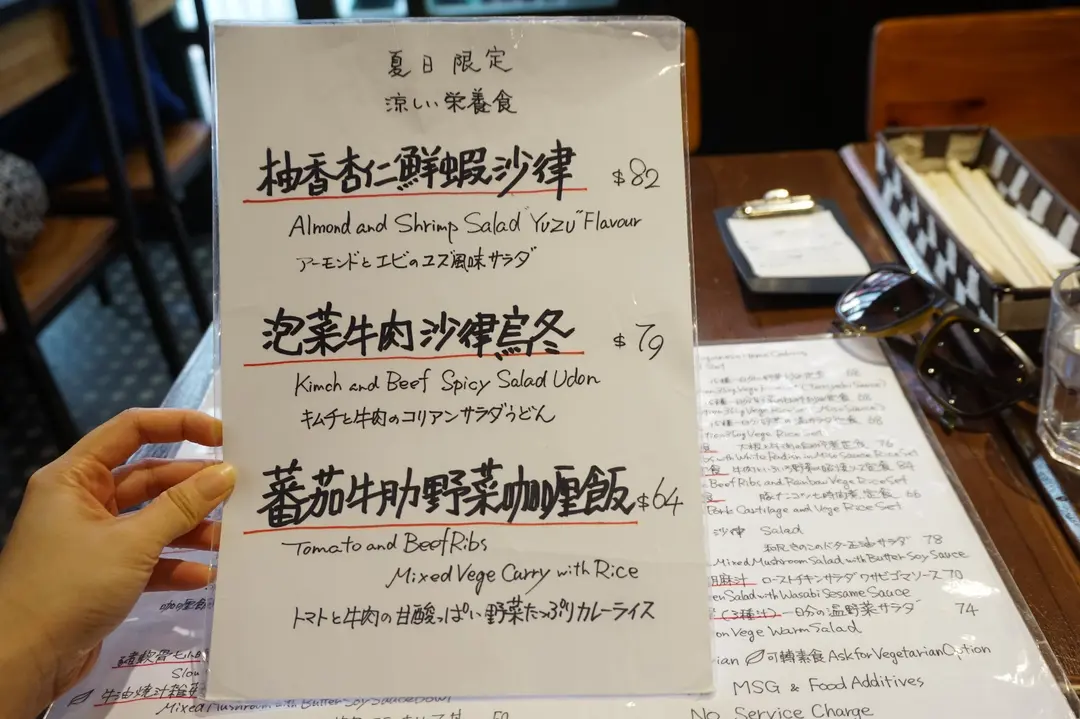 夏日限定
涼しい栄養食
柚香杏仁鮮蝦沙律 $82
Almond and Shrimp Salad "Yuzu" Flavour
アーモンドとエビのユズ風味サラダ
泡菜牛肉沙律烏冬 $79
Kimch and Beef Spicy Salad Udon
キムチと牛肉のコリアンサラダうどん
蕃茄牛肋野菜咖喱飯 $64
Tomato and Beef Ribs
Mixed Vege Carry with Rice
トマトと牛肉の甘酸っぱい野菜たっぷりカレーライス
Beef Ribs and Rainbow Vege Rice Set
Pork Cartilage and Vege Rice Set
沙律 Salad
78
Mixed Mushroom Salad with Butter Soy Sauce
胡麻汁 ローストチキンサラダワサビゴマソース 70
Salad with Wasabi Sesame Sauce
(3種汁) 一日分の温野菜サラダ 74
Vege Warm Salad
可轉素食 Ask for Vegetarian Option
MSG & Food Additives
No Service Charge
牛油焼汁雜菇
Mixed Mushroom with Butter Soy Sauce Bowl